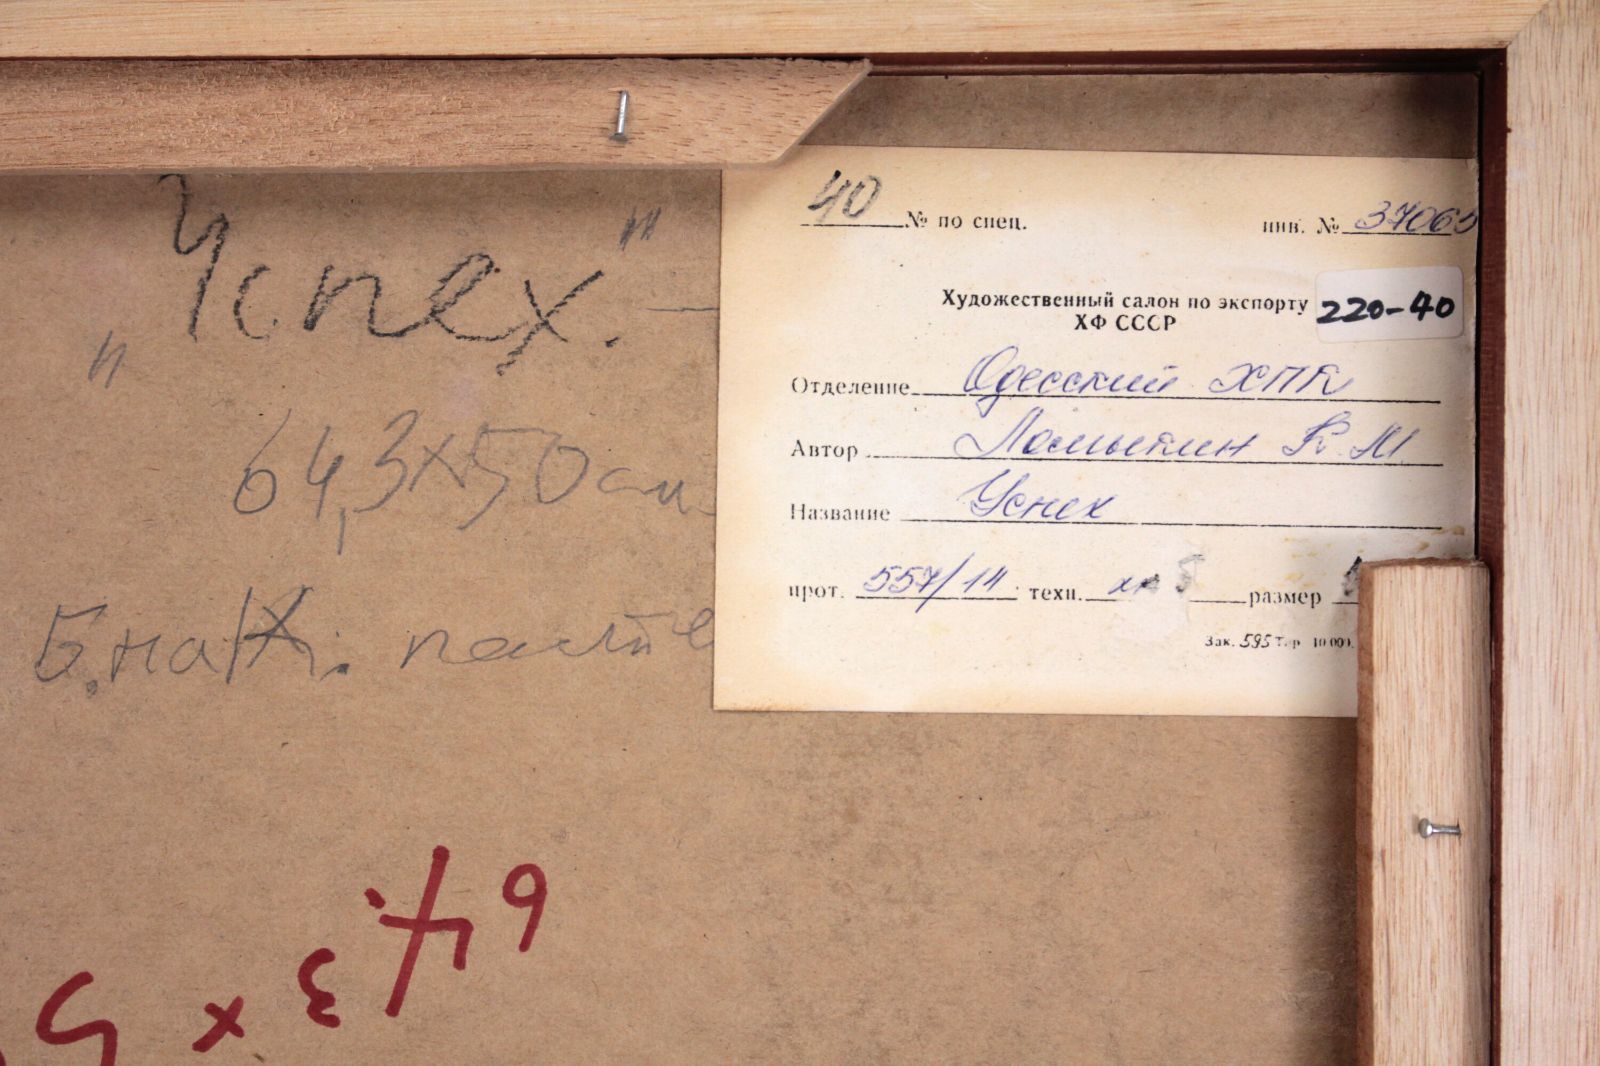 „Успех." —
64,3×50см
Б. на/к. пастe
40 № по спец.
инв. № 3706
Художественный салон по экспорту
ХФ СССР
220-40
Отделение Одесский ХПК
Автор Ломыкин К. М
Название Успех
прот. 557/14 техн. размер
Зак. 595 Тир 10 000.
64.3 × 5